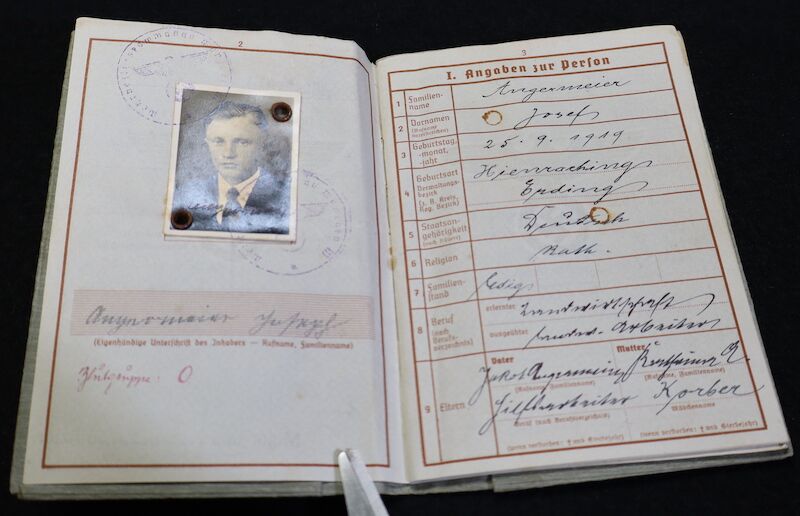 2
Angermeier Joseph
(Eigenhändige Unterschrift des Inhabers — Rufname, Familienname)
Blutgruppe: O
3
I. Angaben zur Person
1 Familien-
name
Angermeier
2 Vornamen
(Rufname
unterstreichen)
Josef
3 Geburtstag,
-monat,
-jahr
25. 9. 1919
4 Geburtsort
Verwaltungs-
bezirk
(z. B. Kreis,
Reg. Bezirk)
Erding
5 Staatsan-
gehörigkeit
(auch frühere)
Deutsch
6 Religion
Kath.
7 Familien-
stand
ledig
8 Beruf
(nach
Berufs-
verzeichnis)
erlernter Landwirtschaft
ausgeübter landw. Arbeiter
9 Eltern
Vater Mutter
Jakob Angermeier
(Rufname, Familienname) (Rufname, Familienname)
Hilfsarbeiter Korber
Beruf (nach Berufsverzeichnis) Mädchenname
(wenn verstorben: † und Sterbejahr) (wenn verstorben: † und Sterbejahr)